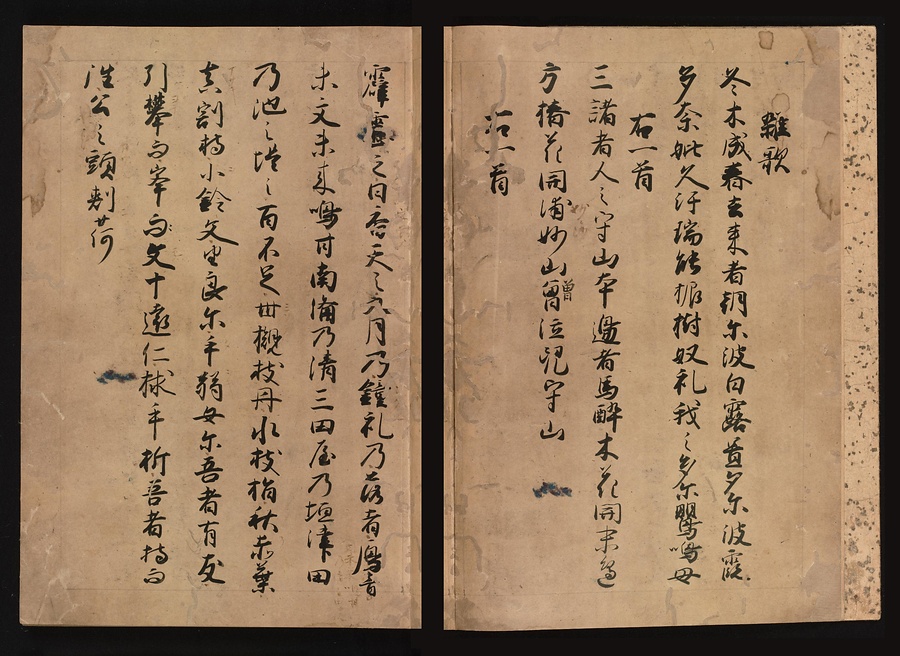 雜歌
冬木成春去来者朝尓波白露置夕尓波霞
多奈妣久汗瑞能振樹奴礼我之多尓鸎鳴母
右一首
三諸者人之守山本邊者馬酔木花開末邊
方椿花開浦妙山曽泣兒守山
僧
右一首
霹靂之日香天之九月乃鍾礼乃落者鴈音
未文未来鳴甘南備乃清三田屋乃垣津田
乃池之堤之百不足卅槻枝丹水枝指秋赤葉
真割持小鈴文由良尓手弱女尓吾者有友
引攀而峯而文十遠仁捄手折吾者持而
徃公之頭刺荷